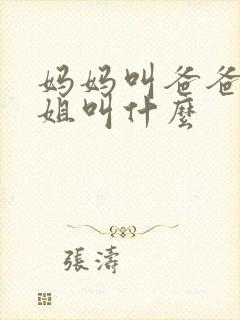 妈妈叫爸爸
姐叫什麼
張濤